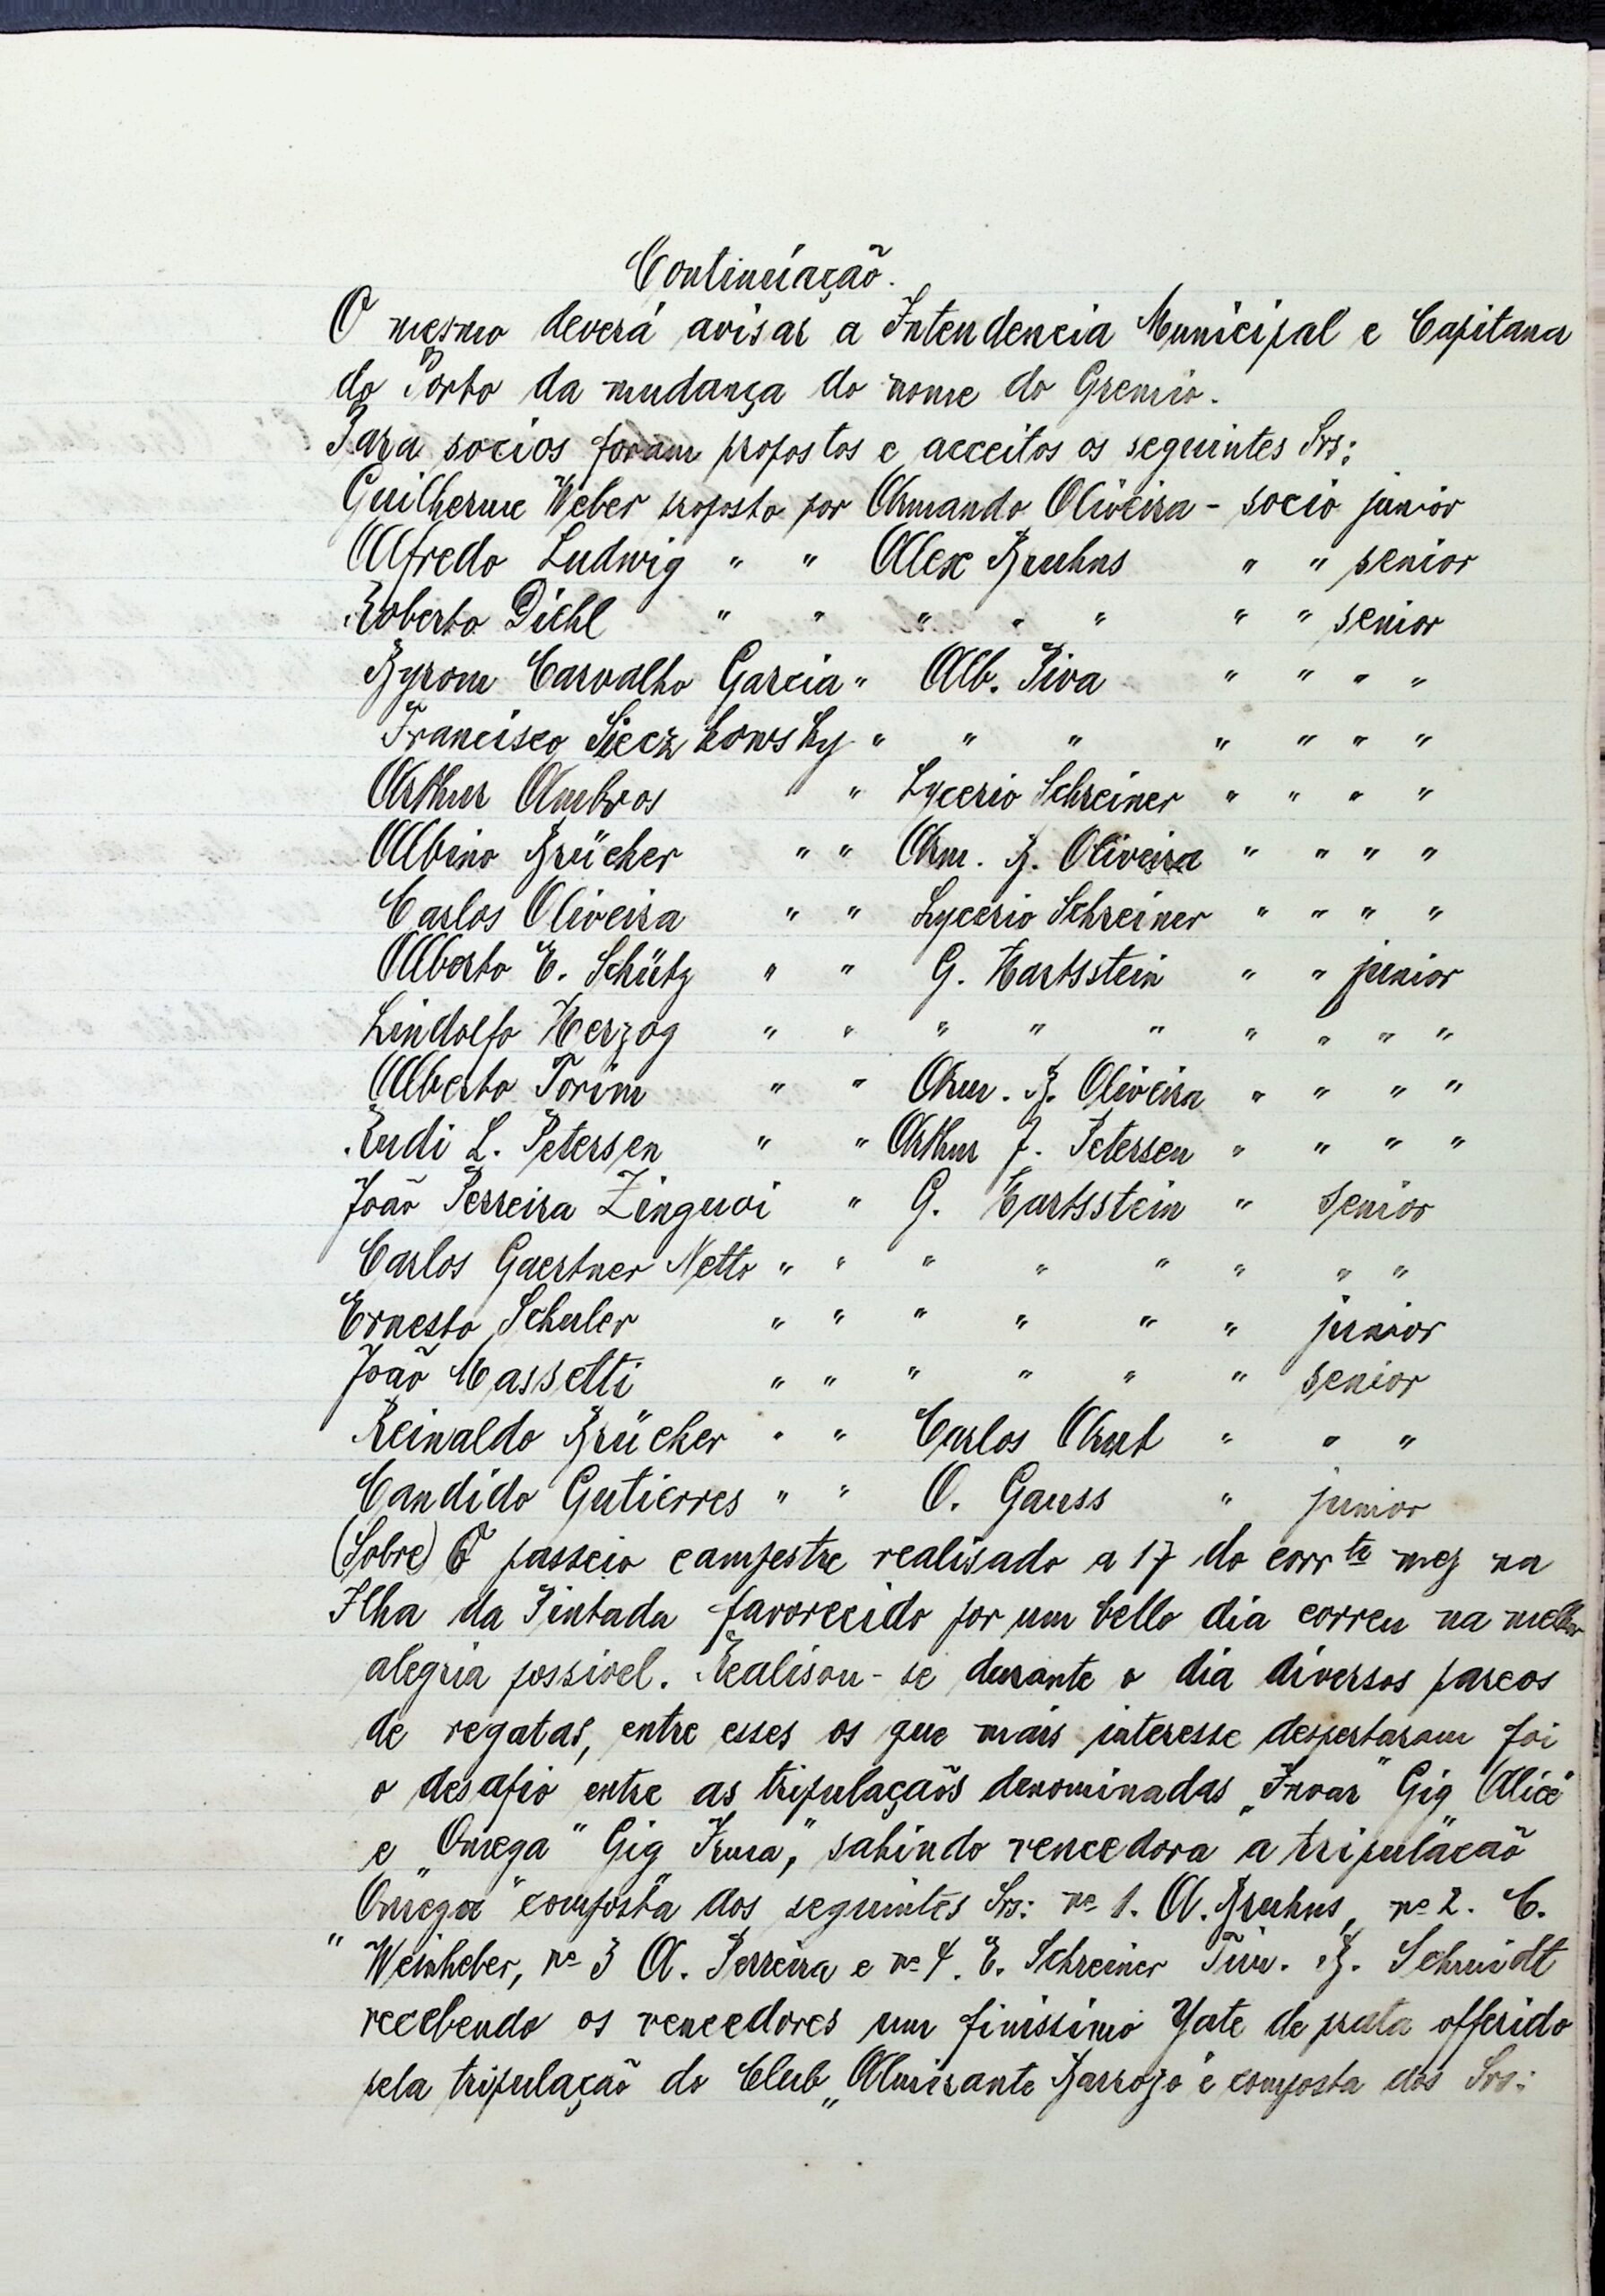 Continuação.
O mesmo deverá avisar a Intendencia Municipal e Capitana
do Porto da mudança do nome do Gremio.
Para socios foram propostos e acceitos os seguintes Srs:
Guilherme Weber proposto por Armando Oliveira - socio junior
Alfredo Ludwig " " Alex Bruhns " " senior
Roberto Diehl " " " " " " " senior
Byrom Carvalho Garcia " Alb. Piva " " " "
Francisco Sieczkowsky " " " " " " "
Arthur Ambros " " Lycerio Schreiner " " " "
Albino Brücher " " Arm. B. Oliveira " " " "
Carlos Oliveira " " Lycerio Schreiner " " " "
Alberto E. Schütz " " G. Hartsstein " " junior
Lindolfo Herzog " " " " " " " " "
Alberto Torim " " Arm. B. Oliveira " " " "
Rudi L. Petersen " " Arthur J. Petersen " " " "
João Perreira Zinguoi " G. Hartsstein " senior
Carlos Gaertner Netto " " " " " " " "
Ernesto Schuler " " " " " " junior
João Massetti " " " " " " senior
Reinaldo Brücher " " Carlos Arnt " " "
Candido Gutierres " " O. Gauss " junior
(Sobre) O passeio campestre realisado a 17 do corrte mez na
Ilha da Pintada favorecido por um bello dia correu na melhor
alegria possivel. Realisou-se durante o dia diversos pareos
de regatas, entre esses os que mais interesse despertaram foi
o desafio entre as tripulaçaõs denominadas „Invar" Gig „Alice"
e „Omega" Gig „Irma", sahindo vencedora a tripulacaõ
„Omega" composta dos seguintes Srs: no 1. A. Bruhns, no 2. C.
Weinheber, no 3 A. Perreira e no 4. E. Schreiner Tim. B. Schmidt
recebendo os vencedores um finissimo Yate de prata offerido
pela tripulaçaõ do Club „Almirante Barrozo" e composta dos Srs: